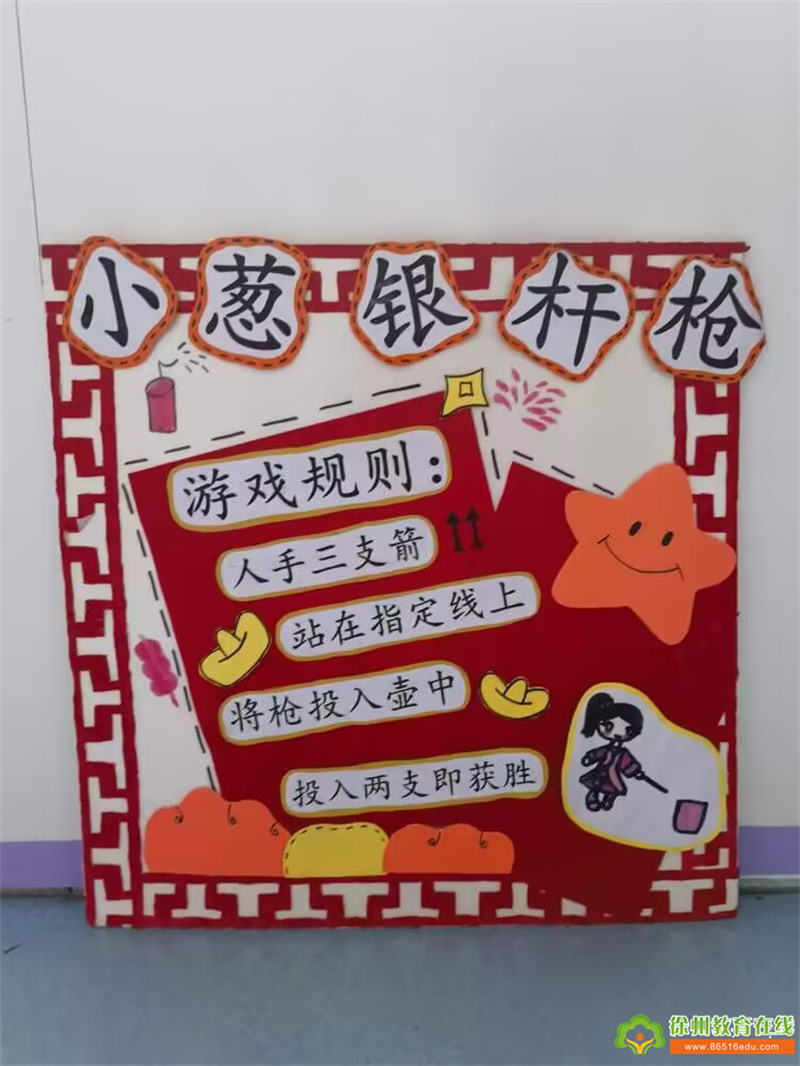 小葱银杆枪
游戏规则：
人手三支箭
站在指定线上
将枪投入壶中
投入两支即获胜
徐州教育在线
www.86516edu.com